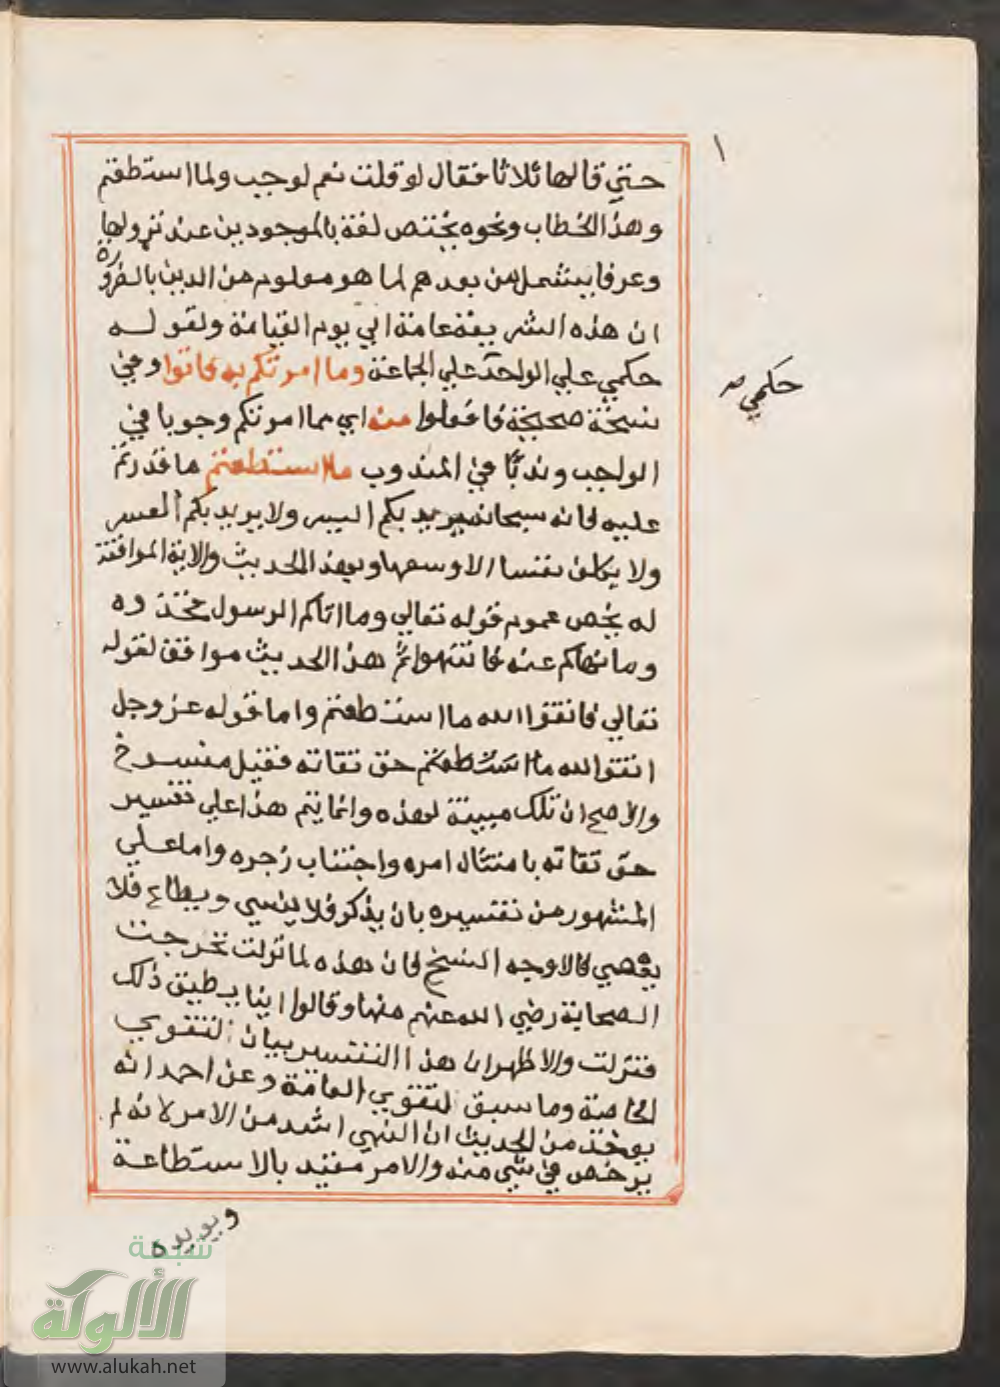 حتي قالها ثلاثا فقال لو قلت نعم لوجب ولما استطعتم
وهذا الخطاب ونحوه يختص لغة بالموجودين عند نزولها
وعرفا يشمل من بعدهم لما هو معلوم من الدين بالضرورة
ان هذه الشريعة عامة الي يوم القيامة ولقوله
حكمي علي الواحد علي الجماعة وما امرتكم به فاتوا وفي
نسخة صحيحة فافعلوا منه اي مما امرتكم وجوبا في
الواجب وندبًا في المندوب ما استطعتم ما قدرتم
عليه فانه سبحانه يريد بكم اليسر ولا يريد بكم العسر
ولا يكلف نفسا الا وسعها وبهذا الحديث والاية الموافقة
له يخص عموم قوله تعالي وما اتاكم الرسول فخذوه
وما نهاكم عنه فانتهوا ثم هذا الحديث موافق لقوله
تعالي فاتقوا الله ما استطعتم واما قوله عز وجل
اتقوا الله ما استطعتم حق تقاته فقيل منسوخ
والاصح ان تلك مبينة لهذه وانما يتم هذا علي تفسير
حق تقاته بامتثال امره واجتناب زجره واما علي
المشهور من تفسيره بان يذكر فلا ينسي ويطاع فلا
يعصي فالاوجه النسخ فان هذه لما نزلت تحرجت
الصحابة رضي الله عنهم منها وقالوا اينا يطيق ذلك
فنزلت والاظهر ان هذا التفسير بيان التقوي
الخاصة وما سبق التقوي العامة وعن احمد انه
يوخذ من الحديث ان النهي اشد من الامر لانه لم
يرخص في شي منه والامر مقيد بالاستطاعة
ويويده
١
حكمي صح
شبكة
الألوكة
www.alukah.net